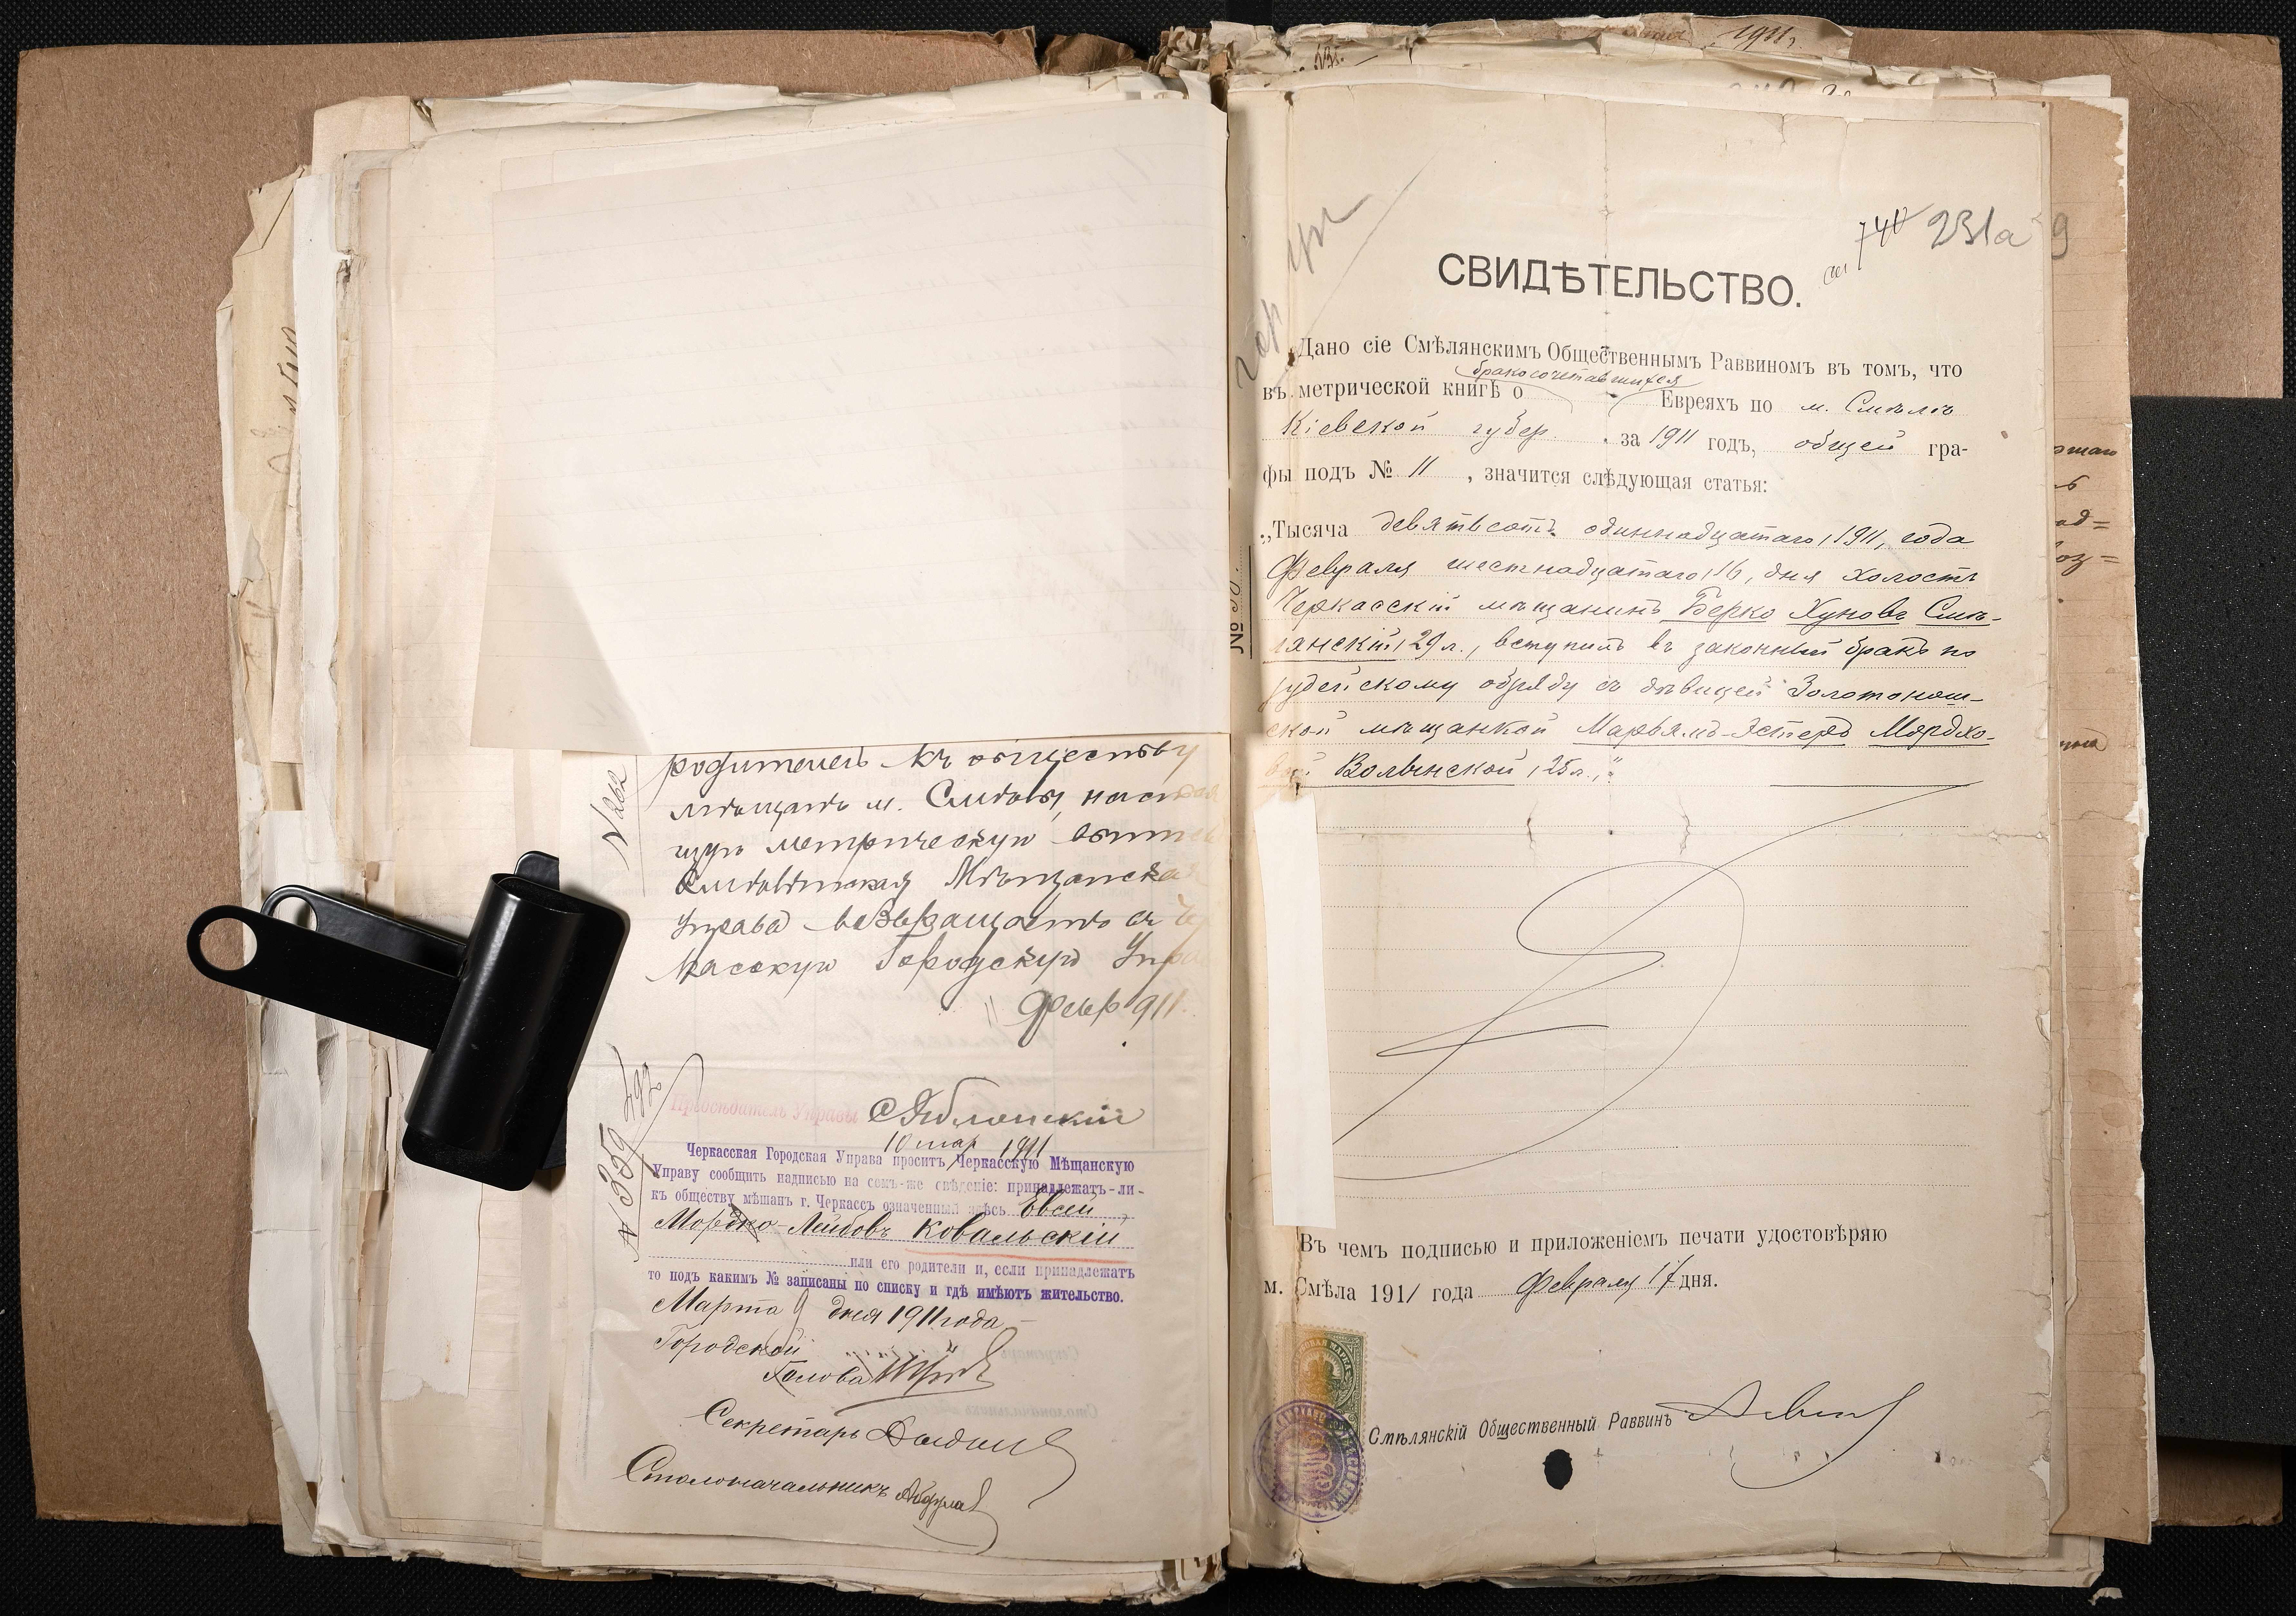 родителей къ обществу
мѣщанъ м. Смѣлы,
метрическую
Смѣлянская Мѣщанская
Управа возвращаетъ въ Чер
касскую Городскую Упра
Февр 911.
№ 262
Предсѣдатель Управы С Яблонскій
№ 359
10 мар 1911
Черкасская Городская Управа проситъ Черкасскую Мѣщанскую
Управу сообщить надписью на семъ-же свѣдѣніе: принадлежатъ-ли-
къ обществу мѣщанъ г. Черкассъ означенный здѣсь Евсей
Мордко-Лейбовъ Ковальскій
или его родители и, если принадлежатъ
то подъ какимъ № записаны по списку и гдѣ имѣютъ жительство.
Марта 9 дня 1911 года
Городской
Голова
Секретарь
Столоначальникъ
1911
740 231а
СВИДѢТЕЛЬСТВО.
Дано сіе Смѣлянскимъ Общественнымъ Раввиномъ въ томъ, что
въ метрической книгѣ о бракосочетавшихся Евреяхъ по м. Смѣлѣ
Кіевской губер. за 1911 годъ, общей гра-
фы подъ № 11, значится слѣдующая статья:
„Тысяча девятьсотъ одиннадцатаго, 1911, года
Февраля шестнадцатаго, 16, дня холостъ
Черкасскій мѣщанинъ Берко Хуновъ Смѣ-
лянскій, 29 л., вступилъ въ законный бракъ по
іудейскому обряду съ дѣвицей Золотонош-
ской мѣщанкой Марьямъ-Эстеръ Мордхо-
вой Волынской, 25 л.,"
Въ чемъ подписью и приложеніемъ печати удостовѣряю
м. Смѣла 1911 года Февраля 17 дня.
Смѣлянскій Общественный Раввинъ